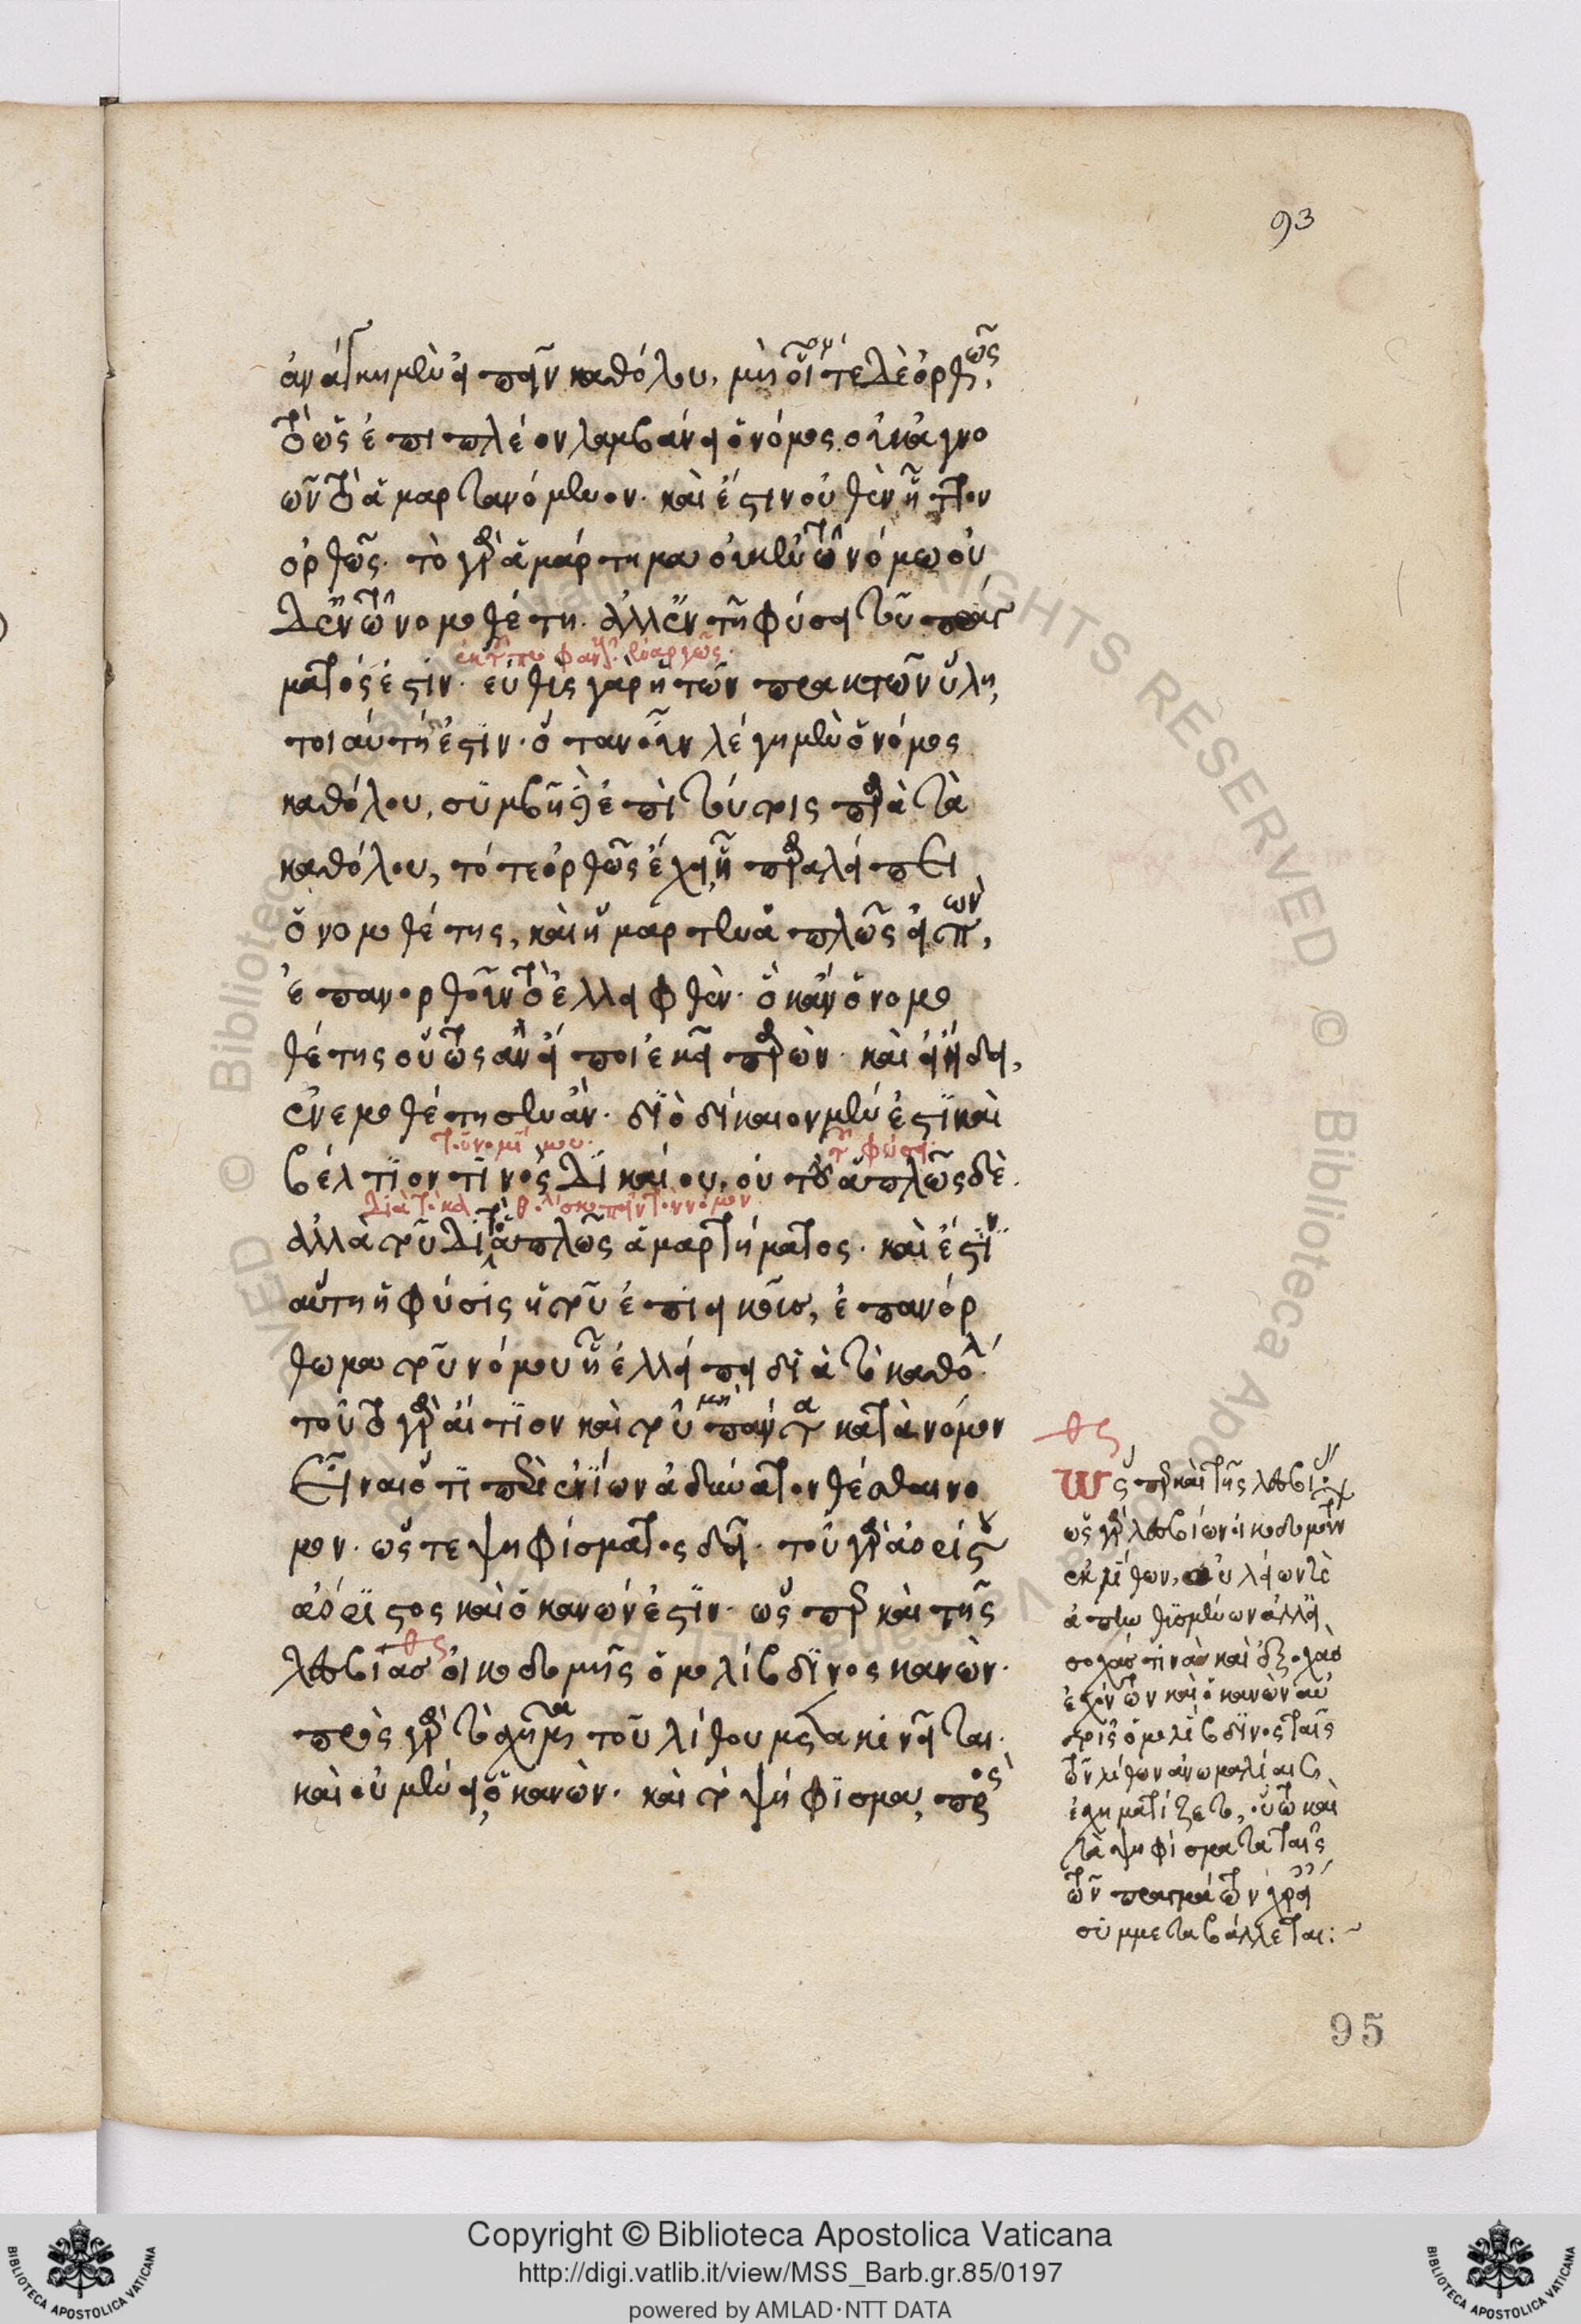 93
ἀνάγκη μὲν εἰπεῖν καθόλου, μὴ οἷόν τε δὲ ὀρθῶς,
τὸ ὡς ἐπιπλέον λαμβάνει ὁ νόμος οὐκ ἀγνο
ῶν τὸ ἁμαρτανόμενον. καὶ ἔστιν οὐθὲν ἧττον
ὀρθῶς. τὸ γὰρ ἁμάρτημα οὐκ ἐν τῶ νόμω οὐ
δ' ἐν τῶ νομοθέτη. ἀλλ' ἐν τῆ φύσει τοῦ πράγ
ματός ἐστιν. εὐθὺς γὰρ ἡ τῶν πρακτῶν ὕλη,
τοιαύτη ἐστίν. ὅταν οὖν λέγη μὲν ὁ νόμος
καθόλου, συμβῆ δὲ ἐπὶ τούτοις παρὰ τὰ
καθόλου, τότε ὀρθῶς ἔχει, ἧ παραλείπει
ὁ νομοθέτης, καὶ ἥμαρτεν ἁπλῶς εἰπών,
ἐπανορθοῦν τὸ ἐλλειφθὲν. ὃ κἂν ὁ νομο
θέτης οὕτως ἂν εἴποι ἐκεῖ παρών. καὶ εἰ ἤδει,
ἐνομοθέτησεν ἄν. διὸ δίκαιον μέν ἐστι καὶ
τοῦ νομίμου. τῆ φύσει.
βέλτιόν τινος δικαίου, οὐ τοῦ ἁπλῶς δὲ.
ἀλλὰ τοῦ διὰ τὸ ἁπλῶς ἁμαρτήματος. καὶ ἔστιν
αὕτη ἡ φύσις ἡ τοῦ ἐπιεικοῦς, ἐπανόρ
θωμα τοῦ νόμου ἧ ἐλλείπει διὰ τὸ καθόλου.
τοῦτο γὰρ αἴτιον καὶ τοῦ μὴ πάντα κατὰ νόμον
εἶναι ὅτι περὶ ἐνίων ἀδύνατον θέσθαι νό
μον. ὥστε ψηφίσματος δεῖ. τοῦ γὰρ ἀορίστου
ἀόριστος καὶ ὁ κανών ἐστιν. ὥσπερ καὶ τῆς
λεσβίας οἰκοδομῆς ὁ μολίβδινος κανών.
πρὸς γὰρ τὸ σχῆμα τοῦ λίθου μετακινεῖται.
καὶ οὐ μένει, ὁ κανών. καὶ τὸ ψήφισμα, πρὸς
ὥσπερ καὶ τῆς λεσβίας
ὡς γὰρ λεσβίων οἰκοδομούν
ἐκ λίθων, οὐ λείων τὲ
ἀποθισμένων ἀλλ'
εἰσοχάς τινας καὶ ἐξοχὰς
ἐχόντων καὶ ὁ κανὼν αὐ
τοῖς ὁ μολίβδινος ταῖς
τῶν λίθων ἀνωμαλίαις
ἐσχηματίζετο, οὕτω καὶ
τὰ ψηφίσματα ταῖς
τῶν πραγμάτων
συμμεταβάλλεται:~
95
Copyright © Biblioteca Apostolica Vaticana
http://digi.vatlib.it/view/MSS_Barb.gr.85/0197
powered by AMLAD·NTT DATA